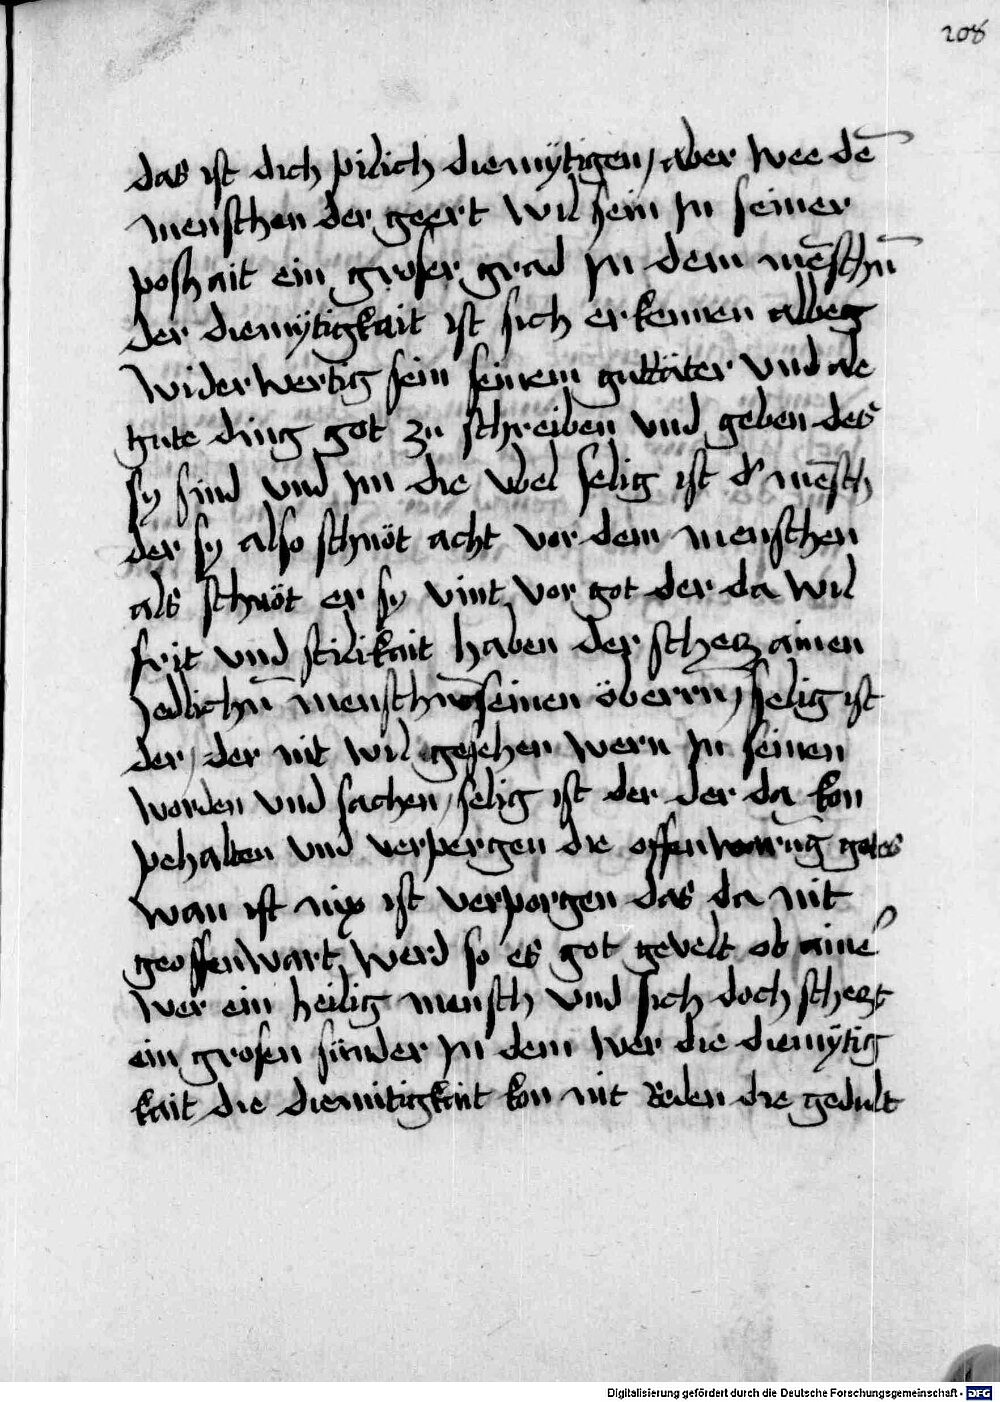 208
das ist dich pilich diemÿtigen / aber wee dē
menschen der geert wil sein in seiner
poshait ein groser grad in dem mēschn̄
der diemÿtigkait ist sich erkennen albeg
widerwertig sein seinem guttäter vnd ale
gute ding got zu schreiben vnd geben des
sy sind vnd im die vbel selig ist d' mēsch
der sy also schnöt acht vor dem menschen
als schnöt er sy vint vor got der da wil
frit vnd stilikait haben der schecz ainen
jedlichn̄ menschn̄ seinen öberrn̄ / selig ist
der / der nit wil gesehen wern in seinen
worden vnd sachen / selig ist der der da kon
pehalten vnd verpergen die offenwarūg gotes
wan ist nix ist verporgen das da nit
geoffenwart werd so es got gevelt ob ainer
wer ein heilig mensch vnd sich doch scheczt
ein grosen sünder in dem wer die diemÿtig
kait die diemitigkait kon nit reden die gedult
Digitalisierung gefördert durch die Deutsche Forschungsgemeinschaft - DFG